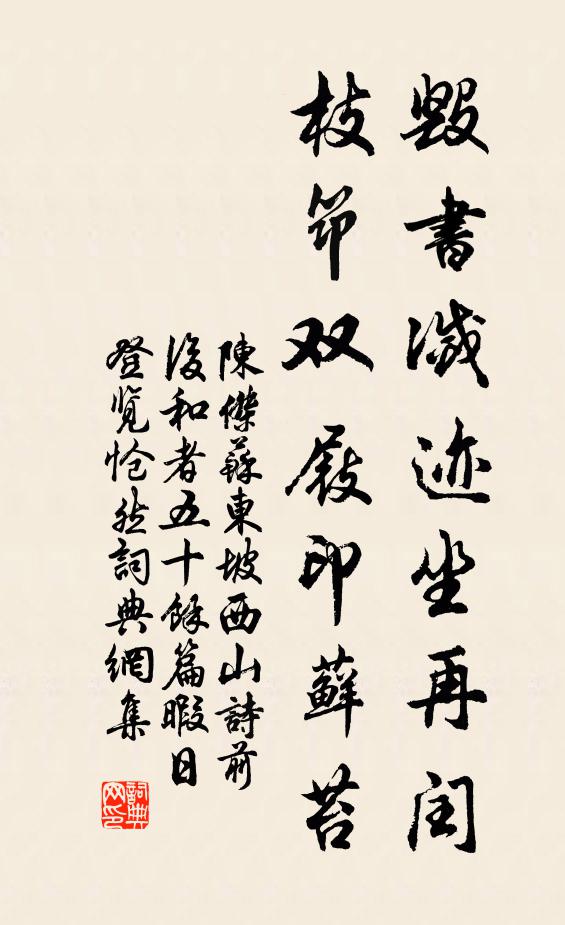 毁書滅迹坐再闰
枝笻双屐印蘚苔
陳傑蘇東坡西山詩前
後和者五十餘篇暇日
登览怆然詞典網集
詞典网印